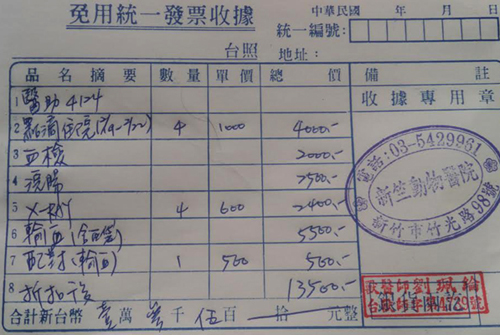 免用統一發票收據
中華民國 年 月 日
統一編號:
台照 地址:
品名摘要 數量 單價 總價 備註
1 醫助4124
2 點滴住院(7/19-7/22) 4 1000 4000.-
3 血檢 2000.-
4 灌腸 2500.-
5 X-RAY 4 600 2400.-
6 輸血(含血袋) 5500.-
7 配對(輸血) 1 500 500.-
8 折扣後 13500.-
合計新台幣 壹萬 參千 伍百 拾 元整
收據專用章
電話:03-5429961
新竺動物醫院
新竹市竹光路98號
獸醫師劉珮綸